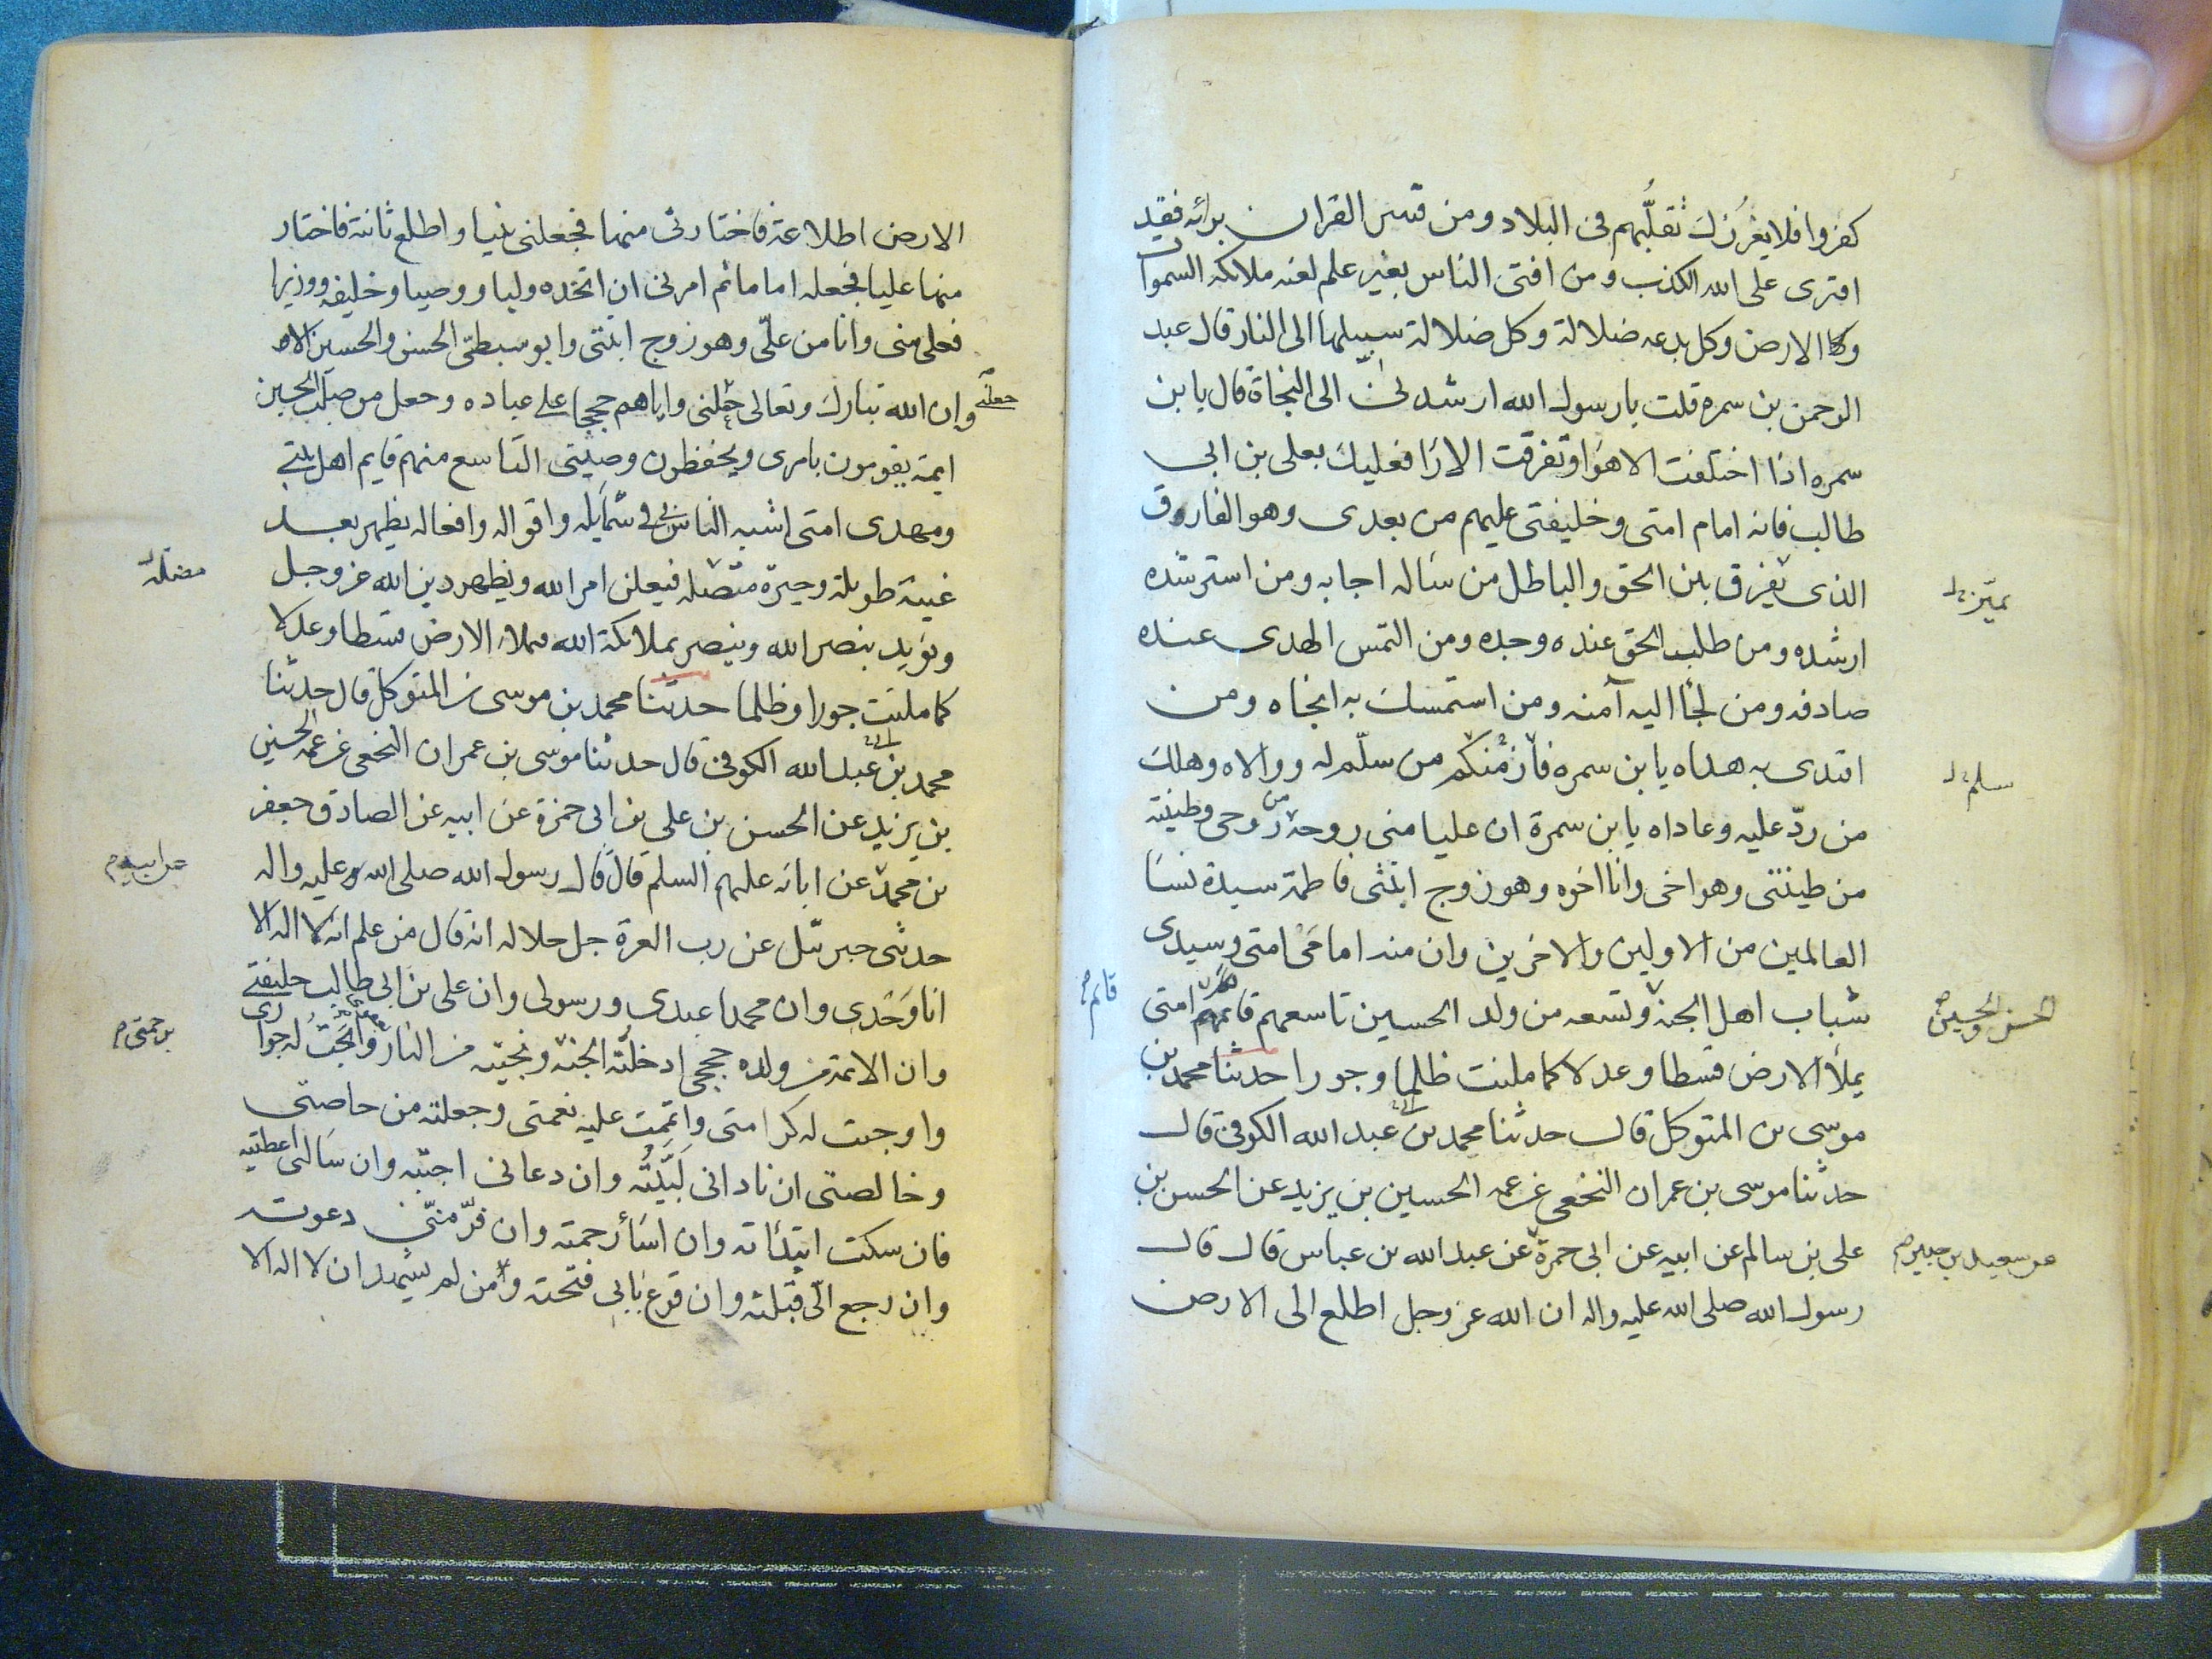 كفروا فلا يغررك تقلبهم فى البلاد ومن فسر القران برائه فقد
افترى على الله الكذب ومن افتى الناس بغير علم لعنه ملائكه السموات
والارض وكل بدعه ضلالة وكل ضلالة سبيلها الى النار قال عبد
الرحمن بن سمره قلت يا رسول الله ارشدنى الى النجاة قال يا بن
سمره اذا اختلفت الاهوا وتفرقت الارا فعليك بعلى بن ابى
طالب فانه امام امتى وخليفتى عليهم من بعدى وهو الفاروق
الذى يفرق بين الحق والباطل من ساله اجابه ومن استرشده
يميّز
ارشده ومن طلب الحق عنده وجده ومن التمس الهدى عنده
صادفه ومن لجأ اليه آمنه ومن استمسك به انجاه ومن
اقتدى به هداه يا بن سمره فان منكم من سلّم له ووالاه وهلك
سلم
من ردّ عليه وعاداه يا بن سمرة ان عليا منى روحه من روحى وطينته
من طينتى وهو اخى وانا اخوه وهو زوج ابنتى فاطمة سيدة نسا
العالمين من الاولين والاخرين وان منه امامى امتى وسيدى
شباب اهل الجنة وتسعه من ولد الحسين تاسعهم قائمهم امتى
الحسن والحسين
قائم
يملأ الارض قسطا وعدلا كما ملئت ظلما وجورا حدثنا محمد بن
موسى بن المتوكل قال حدثنا محمد بن ابى عبد الله الكوفى قال
حدثنا موسى بن عمران النخعى عن عمه الحسين بن يزيد عن الحسن بن
على بن سالم عن ابيه عن ابى حمزة عن عبد الله بن عباس قال قال
عن سعيد بن جبير
رسول الله صلى الله عليه واله ان الله عز وجل اطلع الى الارض
الارض اطلاعة فاختارنى منها فجعلنى نبيا واطلع ثانية فاختار
منها عليا فجعله اماما ثم امرنى ان اتخذه وليا ووصيا وخليفه ووزيرا
فعلى منى وانا من علىّ وهو زوج ابنتى وابو سبطىّ الحسن والحسين الا
وان الله تبارك وتعالى جعلنى واياهم حججا على عباده وجعل من صلب الحسين
جعلنى
ايمة يقومون بامرى ويحفظون وصيتى التاسع منهم قايم اهل بيتى
ومهدى امتى اشبه الناس بى فى شمايله واقواله وافعاله يظهر بعد
غيبة طويلة وحيرة مضله فيعلن امر الله ويظهر دين الله عز وجل
مضلّة
ويؤيد بنصر الله وينصر بملائكة الله فيملأ الارض قسطا وعدلا
كما ملئت جورا وظلما حدثنا محمد بن موسى بن المتوكل قال حدثنا
محمد بن ابى عبد الله الكوفى قال حدثنا موسى بن عمران النخعى عن عمه الحسين
بن يزيد عن الحسن بن على بن ابى حمزة عن ابيه عن الصادق جعفر
بن محمد عن ابائه عليهم السلم قال قال رسول الله صلى الله عليه واله
عن ابيه
حدثنى جبرئيل عن رب العزة جل جلاله انه قال من علم انه لا اله الا
انا وحدى وان محمدا عبدى ورسولى وان على بن ابى طالب خليفتى
وان الائمة من ولده حججى ادخلته الجنة ونجيته من النار وابحت له جوارى
برحمتى
واوجبت له كرامتى واتممت عليه نعمتى وجعلته من خاصتى
وخالصتى ان نادانى لبيته وان دعانى اجبته وان سالنى اعطيته
فان سكت ابتدأته وان اسأ رحمته وان فرّ منى دعوته
وان رجع الىّ قبلته وان قرع بابى فتحته ومن لم يشهد ان لا اله الا